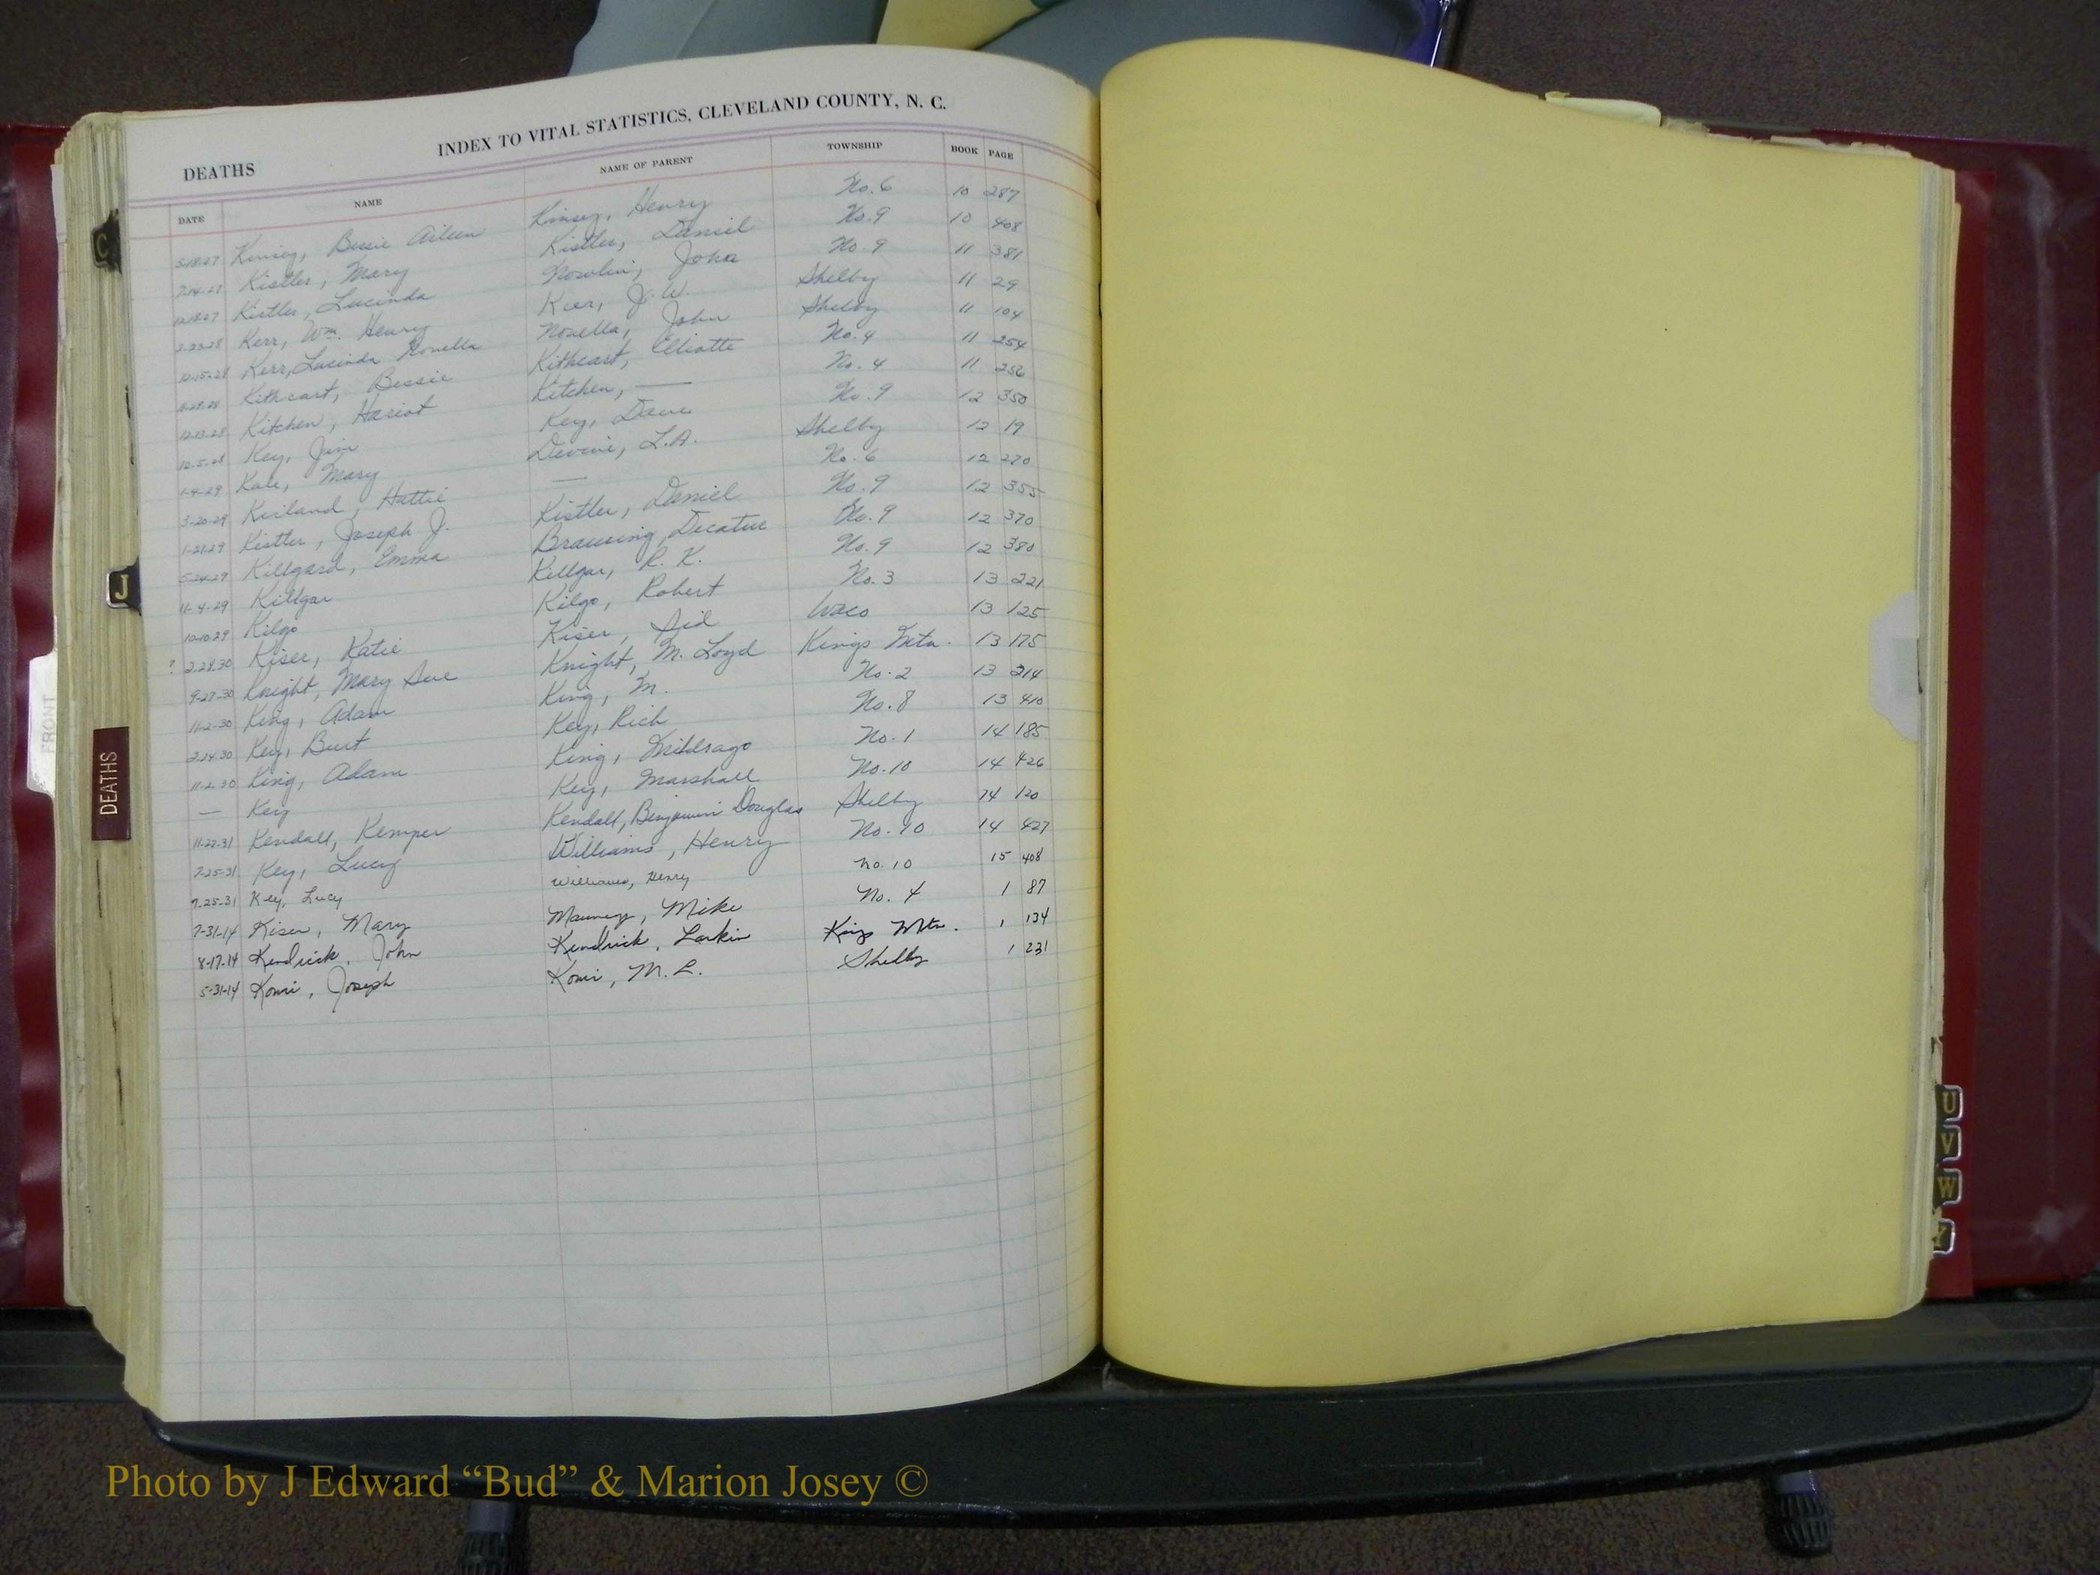 INDEX TO VITAL STATISTICS, CLEVELAND COUNTY, N. C.
DEATHS
DATE NAME NAME OF PARENT TOWNSHIP BOOK PAGE
Kinsey, Bessie Aileen Kinsey, Henry No. 6 10 287
7-14-27 Kistler, Mary Kistler, Daniel No. 9 10 408
Kistler, Lucinda Nowlin, John No. 9 11 381
2-23-28 Kerr, Wm. Henry Kier, J. W. Shelby 11 29
12-15-28 Kerr, Lucinda John Shelby 11 104
11-28-28 Kithcart, Bessie Kithcart, Elliotte No. 4 11 254
12-13-28 Kitchen, Hariot Kitchen, — No. 4 11 256
12-5-28 Key, Jim Key, Dave No. 9 12 350
1-4-29 Kale, Mary Devine, L.A. Shelby 12 19
3-20-29 Hattie — No. 6 12 270
1-21-29 Kistler, Joseph J. Kistler, Daniel No. 9 12 355
5-24-29 Killgard, Emma Decatur No. 9 12 370
11-4-29 Killgar Killgar, R. K. No. 9 12 380
10-10-29 Kilgo Kilgo, Robert No. 3 13 221
? 2-28-30 Kiser, Katie Kiser, Sid Waco 13 125
9-27-30 Knight, Mary Sue Knight, M. Loyd Kings Mtn. 13 175
11-2-30 King, Adam King, M. No. 2 13 214
2-24-30 Key, Burt Key, Rich No. 8 13 410
11-2-30 King, Adam King, Mildrago No. 1 14 185
— Key Key, Marshall No. 10 14 426
11-22-31 Kendall, Kemper Kendall, Benjamin Douglas Shelby 14 120
7-25-31 Key, Lucy Williams, Henry No. 10 14 427
7-25-31 Key, Lucy Williams, Henry no. 10 15 408
7-31-14 Kiser, Mary Mauney, Mike No. 4 1 87
8-17-14 Kendrick, John Kendrick, Larkin Kings Mtn. 1 134
5-31-14 Koni, Joseph Koni, M. L. Shelby 1 231
C
J
DEATHS
FRONT
U
V
W
Y
Photo by J Edward “Bud” & Marion Josey ©